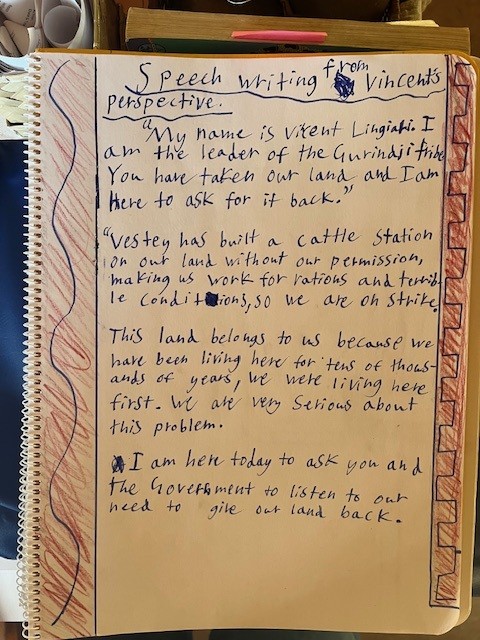 Speech writing from Vincent's
perspective.
"My name is Vicent Lingiari. I
am the leader of the Gurindji tribe
You have taken our land and I am
here to ask for it back."
"Vestey has built a cattle station
on our land without our permission,
making us work for rations and terrib-
le conditions, so we are on strike.
This land belongs to us because we
have been living here for tens of thous-
ands of years, we were living here
first. We are very serious about
this problem.
I am here today to ask you and
the Government to listen to our
need to give our land back.